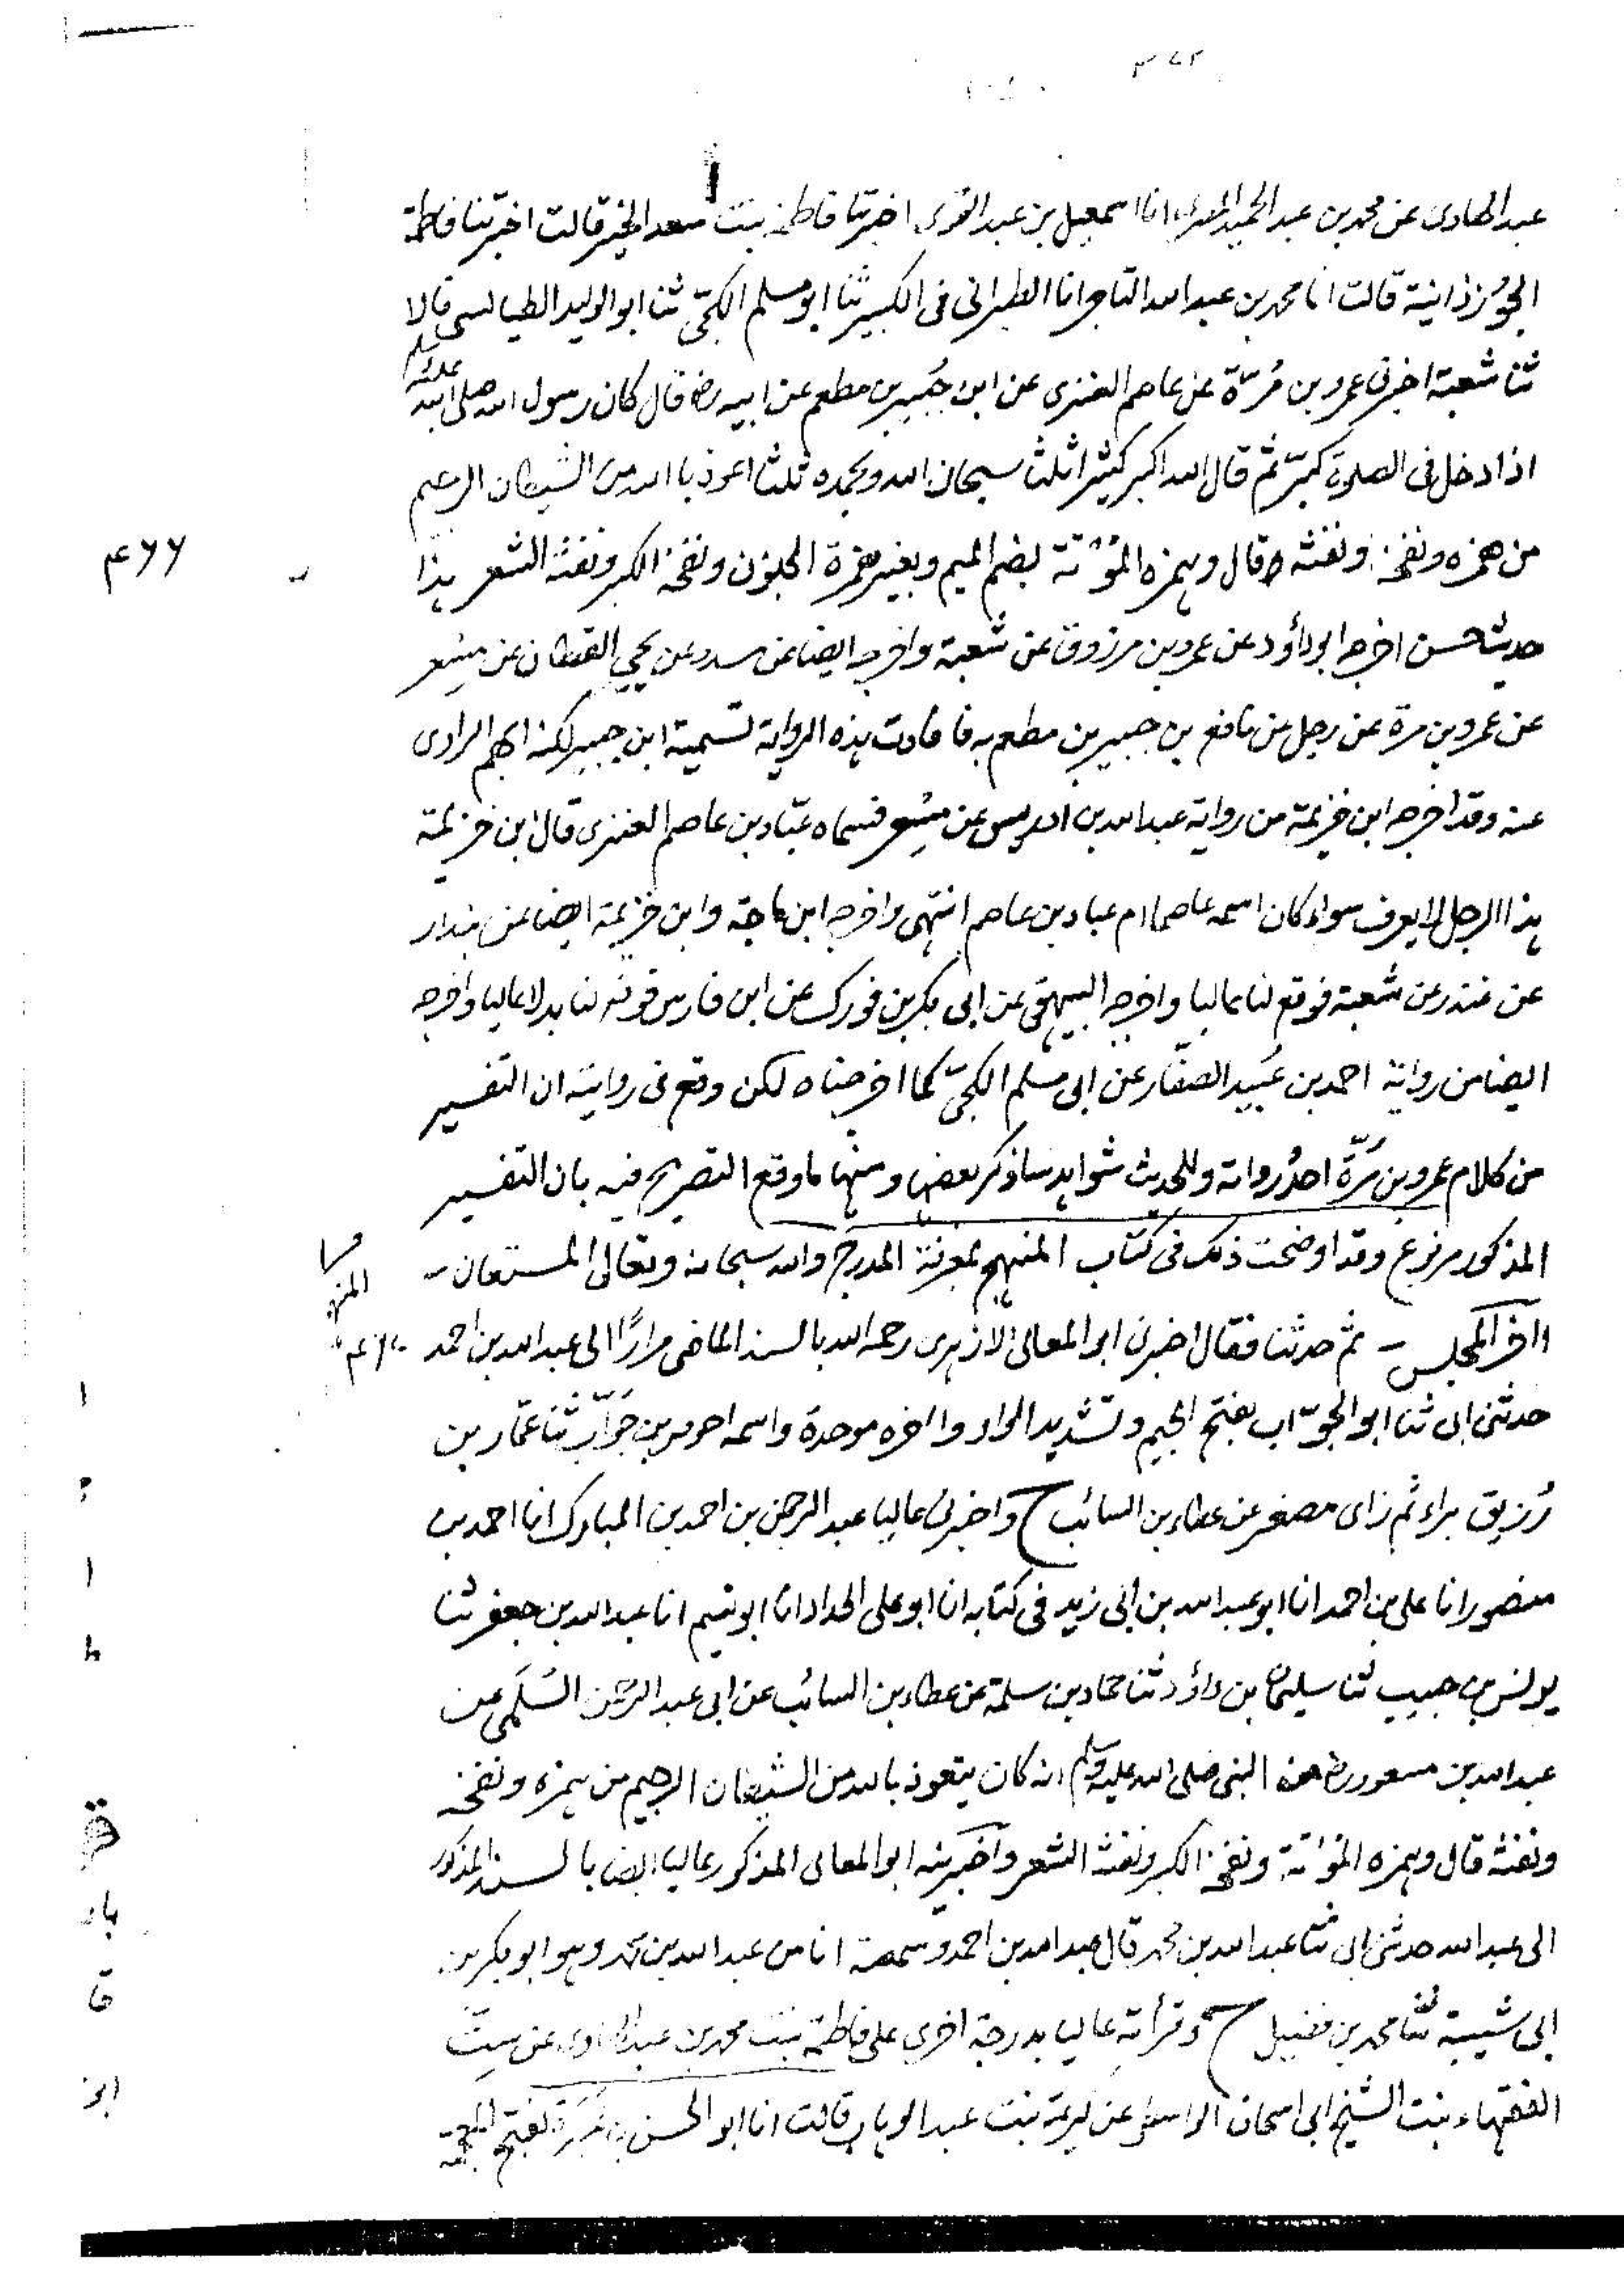 عبد الهادى عن محمد بن عبد الحميد المصرى انا اسمعيل بن عبد القوى اخبرتنا فاطمة بنت سعد الخير قالت اخبرتنا فاطمة
الجوزذانية قالت انا محمد بن عبد الله التاجر انا الطبرانى فى الكبير ثنا ابو مسلم الكجّى ثنا ابو الوليد الطيالسى قالا
ثنا شعبة اخبرنى عمرو بن مُرّة عن عاصم العنزى عن ابن جُبير بن مطعم عن ابيه رضـ قال كان رسول الله صلى الله عليه وسلم
اذا دخل فى الصلوة كبّر ثم قال الله اكبر كثيرا ثلث سبحان الله وبحمده ثلثا اعوذ بالله من الشيطان الرجيم
من همزه ونفخه ونفثه قال وهمزه المؤتة بضم الميم وبغير همزة الجنون ونفخه الكبر ونفثه الشعر هذا
۴۶۶
حديث حسن اخرجه ابو داؤد عن عمرو بن مرزوق عن شعبة واخرجه ايضا عن مسدد عن يحيى القطان عن مِسعر
عن عمرو بن مرة عن رجل عن نافع بن جبير بن مطعم به فافادت هذه الرواية تسمية ابن جبير لكنه ابهم الراوى
عنه وقد اخرجه ابن خزيمة من رواية عبد الله بن ادريس عن مِسعر فسماه عبّاد بن عاصم العنزى قال ابن خزيمة
هذا الرجل لا يعرف سواء كان اسمه عاصما ام عباد بن عاصم انتهى واخرجه ابن ماجة وابن خزيمة ايضا عن بندار
عن غندر عن شعبة فوقع لنا عاليا واخرجه البيهقى عن ابى بكر بن فورك عن ابن فارس فوقع لنا بدلا عاليا واخرجه
ايضا من رواية احمد بن عُبيد الصفّار عن ابى مسلم الكجّى كما اخرجناه لكن وقع فى روايته ان التفسير
من كلام عمرو بن مُرّة احد رواته وللحديث شواهد ساذكر بعضها ومنها ما وقع التصريح فيه بان التفسير
المذكور مرفوع وقد اوضحت ذلك فى كتاب المنهج لمعرفة المدرج والله سبحانه وتعالى المستعان
المنهـ
اٰخر المجلس ثم حدثنا فقال اخبرنى ابو المعالى الازهرى رحمه الله بالسند الماضى مرارًا الى عبد الله بن احمد
حدثنى ابى ثنا ابو الجوّاب بفتح الجيم وتشديد الواو واٰخره موحدة واسمه احوص بن جَوّاب ثنا عمّار بن
رُزيق براء ثم زاى مصغر عن عطاء بن السائب ح واخبرنى عاليا عبد الرحمن بن احمد بن المبارك انا احمد بن
منصور انا على بن احمد انا ابو عبد الله بن ابى زيد فى كتابه انا ابو على الحداد انا ابو نعيم انا عبد الله بن جعفر ثنا
يونس بن حبيب ثنا سليمان بن داؤد ثنا حماد بن سلمة عن عطاء بن السائب عن ابى عبد الرحمن السُلَمى عن
عبد الله بن مسعود رضـ عن النبى صلى الله عليه وسلم انه كان يتعوذ بالله من الشيطان الرجيم من همزه ونفخه
ونفثه قال وهمزه المؤتة ونفخه الكبر ونفثه الشعر واخبرنيه ابو المعالى المذكور عاليا ايضا بالسند المذكور
الى عبد الله حدثنى ابى ثنا عبد الله بن محمد قال عبد الله بن احمد وسمعته انا من عبد الله بن محمد وهو ابو بكر بن
ابى شيبة ثنا محمد بن فضيل ح وقرأته عاليا بدرجة اخرى على فاطمة بنت محمد بن عبد الهادى عن ست
الفقهاء بنت الشيخ ابى اسحاق الواسطى عن كريمة بنت عبد الوهاب قالت انا ابو الحسن بن غَبَرة بفتح المعجمة